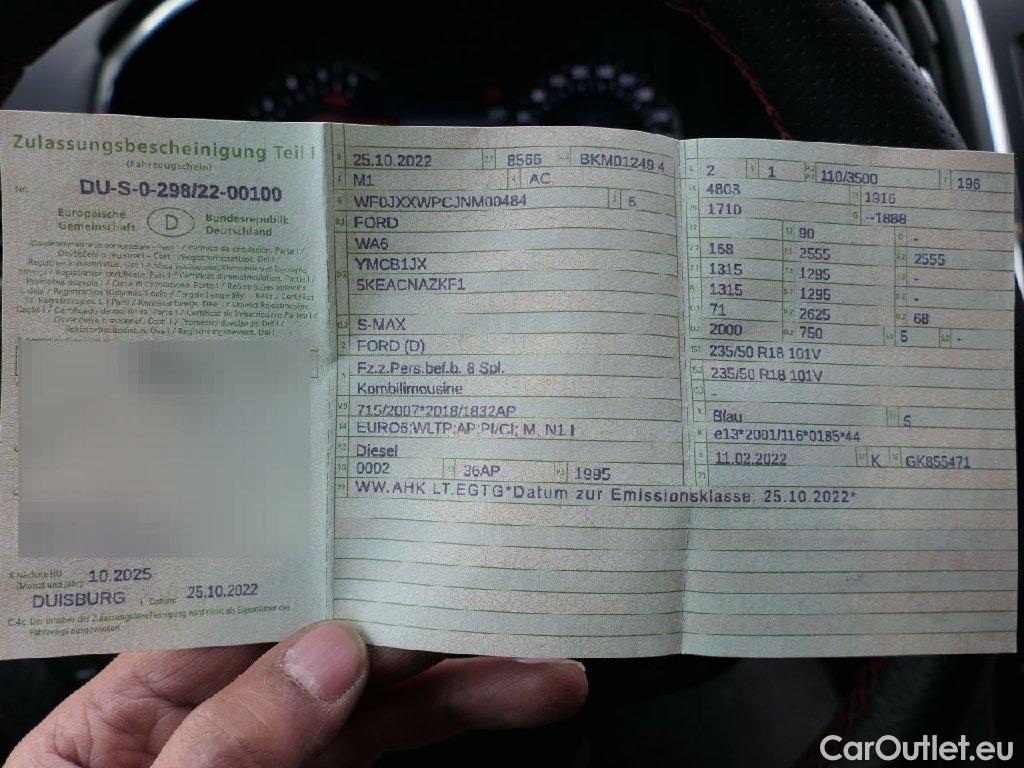 Zulassungsbescheinigung Teil I
(Fahrzeugschein)
Nr. DU-S-0-298/22-00100
Europäische Gemeinschaft
D
Bundesrepublik Deutschland
K Nächste HU (Monat und Jahr) 10.2025
DUISBURG Datum: 25.10.2022
C.4c Der Inhaber der Zulassungsbescheinigung wird nicht als Eigentümer des
Fahrzeugs ausgewiesen.
B 25.10.2022 8566 BKM01249 4
J M1 4 AC
E WF0JXXWPCJNM00484 3 6
D.1 FORD
WA6
D.2 YMCB1JX
5KEACNAZKF1
D.3 S-MAX
2 FORD (D)
5 Fz.z.Pers.bef.b. 8 Spl.
Kombilimousine
V.9 715/2007*2018/1832AP
14 EURO6;WLTP;AP;PI/CI; M, N1 I
P.3 Diesel
10 0002 36AP P.1 1995
22 WW.AHK LT.EGTG*Datum zur Emissionsklasse: 25.10.2022*
L 2 9 1 110/3500 T 196
18 4803 1916
20 1710 --1888
13 90 -
168 2555 2555
7.1 1315 1295 -
8.1 1315 1295 -
71 2625 68
O.1 2000 O.2 750 S.1 5 S.2 -
15.1 235/50 R18 101V
15.2 235/50 R18 101V
-
R Blau 11 5
K e13*2001/116*0185*44
6 11.02.2022 17 K 16 GK855471
21
CarOutlet.eu